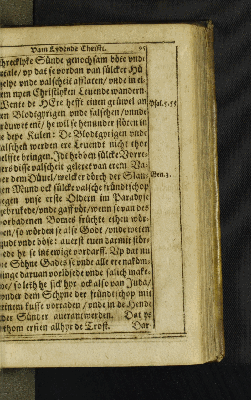 Vam Lydende Christi. 95
schrecklyke Sünde genochsam höre vnde
betale / vp dat se vordan van sülcker Hü
chelye vnde valscheit afflaten / vnde in ei
nem nyen Christlyken Levende wandern
Wente de HEre hefft einen grüwel an
den Blodtgyrigen vnde valschen / vnnde
vorduwet en / he wil se henunder stöten in
de depe Kulen: De Blodtgyrigen vnde
valschen werden ere Levendt nicht thor
helffte bringen. Jdt hebben sülcke Vorre-
ders disse valscheit geleret van erem Va-
der dem Düvel / welcker dörch der Slan-
gen Mund ock sülcke valsche fründtschop
jegen vnse erste Oldern im Paradyse
gebrukede / vnde gaff vör / wenn se van des
vorbadenen Bomes früchte ethen wör-
den / so würden se alse Godt / vnde weten
gudt vnde böse: auerst euen darmit störe-
de he se in ewigt vordarff. Vp dat nu
de Söhne Gades se vnde alle ere naköm-
linge daruan vorlösede vnde salich make-
de / so leth he sick hyr ock also van Juda /
vnder dem Schyne der fründtschop mit
einem kusse vorraden / vnde in de Hende
der Sünder auerantwerden. Dat ys
thom ersten allhyr de Trost.
Dar
Psal. 5. 55
Gen. 3.